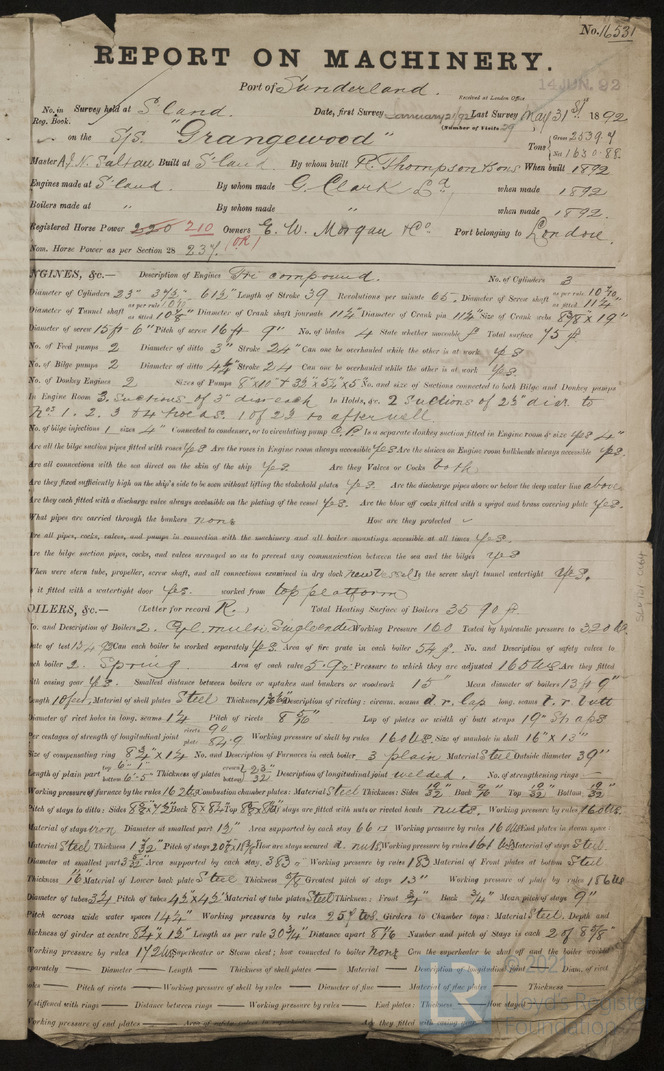 No. 16531
REPORT ON MACHINERY.
Port of Sunderland.
Received at London Office 14 JUN. 92
No. in Reg. Book. Survey held at S'land. Date, first Survey January 21/92 Last Survey May 31st 1892
(Number of Visits 29)
on the S/S. "Grangewood" Tons Gross 2539.4 Net 1630.88
Master Built at S'land By whom built R. Thompson & Sons When built 1892
Engines made at S'land. By whom made G. Clark Ld, when made 1892
Boilers made at " By whom made " when made 1892.
Registered Horse Power 220 210 Owners E. W. Morgan & Co. Port belonging to London.
Nom. Horse Power as per Section 28 237. (OR)
NGINES, &c.— Description of Engines Tri compound. No. of Cylinders 3
Diameter of Cylinders 23" 37½" 61½" Length of Stroke 39 Revolutions per minute 65. Diameter of Screw shaft as per rule as fitted 11¼"
Diameter of Tunnel shaft as per rule as fitted 10⅝" Diameter of Crank shaft journals 11½" Diameter of Crank pin 11½" Size of Crank webs
Diameter of screw 15ft-6" Pitch of screw 16ft 9" No. of blades 4 State whether moveable Total surface 75
No. of Feed pumps 2 Diameter of ditto 3" Stroke 24" Can one be overhauled while the other is at work yes
No. of Bilge pumps 2 Diameter of ditto Stroke 24 Can one be overhauled while the other is at work yes.
No. of Donkey Engines 2 Sizes of Pumps No. and size of Suctions connected to both Bilge and Donkey pumps
In Engine Room 3. Suctions of 3" dia each In Holds, &c. 2 Suctions of 2½" dia to
Nos 1. 2. 3 & 4 holds. 1 of 2½ to after well
No. of bilge injections 1 sizes 4" Connected to condenser, or to circulating pump C.P. Is a separate donkey suction fitted in Engine room & size yes 4"
Are all the bilge suction pipes fitted with roses yes Are the roses in Engine room always accessible yes Are the sluices on Engine room bulkheads always accessible yes.
Are all connections with the sea direct on the skin of the ship yes. Are they Valves or Cocks both
Are they fixed sufficiently high on the ship's side to be seen without lifting the stokehold plates yes. Are the discharge pipes above or below the deep water line above
Are they each fitted with a discharge valve always accessible on the plating of the vessel yes. Are the blow off cocks fitted with a spigot and brass covering plate yes.
What pipes are carried through the bunkers none How are they protected
Are all pipes, cocks, valves, and pumps in connection with the machinery and all boiler mountings accessible at all times yes.
Are the bilge suction pipes, cocks, and valves arranged so as to prevent any communication between the sea and the bilges yes
When were stern tube, propeller, screw shaft, and all connections examined in dry dock new vessel Is the screw shaft tunnel watertight yes.
is it fitted with a watertight door yes. worked from top platform
OILERS, &c.— (Letter for record R.) Total Heating Surface of Boilers 3590 ft.
No. and Description of Boilers 2. Cyl. multi. Single ended Working Pressure 160 Tested by hydraulic pressure to 320 lbs
Date of test Can each boiler be worked separately yes. Area of fire grate in each boiler 54 No. and Description of safety valves to
each boiler 2. Spring. Area of each valve Pressure to which they are adjusted 165 lbs Are they fitted
with easing gear yes. Smallest distance between boilers or uptakes and bunkers or woodwork 15" Mean diameter of boilers 13ft 9"
Length 10 feet, Material of shell plates Steel Thickness Description of riveting: circum. seams d.r. lap long. seams t.r. butt
Diameter of rivet holes in long. seams Pitch of rivets Lap of plates or width of butt straps 19" Straps
Per centages of strength of longitudinal joint rivets 90 plate 84.9 Working pressure of shell by rules 160 lbs. Size of manhole in shell 16" x 13"
Size of compensating ring No. and Description of Furnaces in each boiler 3 plain Material Steel Outside diameter 39"
Length of plain part top 6'-1" bottom 6'-5" Thickness of plates crown bottom Description of longitudinal joint welded. No. of strengthening rings —
Working pressure of furnace by the rules 162 lbs Combustion chamber plates: Material Steel Thickness: Sides Back Top Bottom
Pitch of stays to ditto: Sides Back Top If stays are fitted with nuts or riveted heads nuts. Working pressure by rules 160 lbs.
Material of stays iron Diameter at smallest part 1½" Area supported by each stay 66 Working pressure by rules 160 lbs End plates in steam space:
Material Steel Thickness Pitch of stays How are stays secured d. nuts Working pressure by rules 161 lbs Material of stays Steel.
Diameter at smallest part Area supported by each stay, 383 Working pressure by rules 183 Material of Front plates at bottom Steel
Thickness Material of Lower back plate Steel Thickness Greatest pitch of stays 13" Working pressure of plate by rules 186 lbs
Diameter of tubes 3¼ Pitch of tubes 4½" x 4½" Material of tube plates Steel Thickness: Front ¾" Back ¾" Mean pitch of stays 9"
Pitch across wide water spaces 14¼" Working pressures by rules lbs. Girders to Chamber tops: Material Steel. Depth and
thickness of girder at centre Length as per rule 30¾" Distance apart Number and pitch of Stays in each 2 of 8⅝"
Working pressure by rules 172 lbs Superheater or Steam chest; how connected to boiler none Can the superheater be shut off and the boiler worked
separately — Diameter — Length — Thickness of shell plates — Material — Description of longitudinal joint — Diam. of rivet
holes — Pitch of rivets — Working pressure of shell by rules — Diameter of flue — Material of flue plates — Thickness
If stiffened with rings — Distance between rings — Working pressure by rules — End plates: Thickness — How stayed
Working pressure of end plates — Are they fitted with easing
LR
© 2021
Lloyd's Register
Foundation